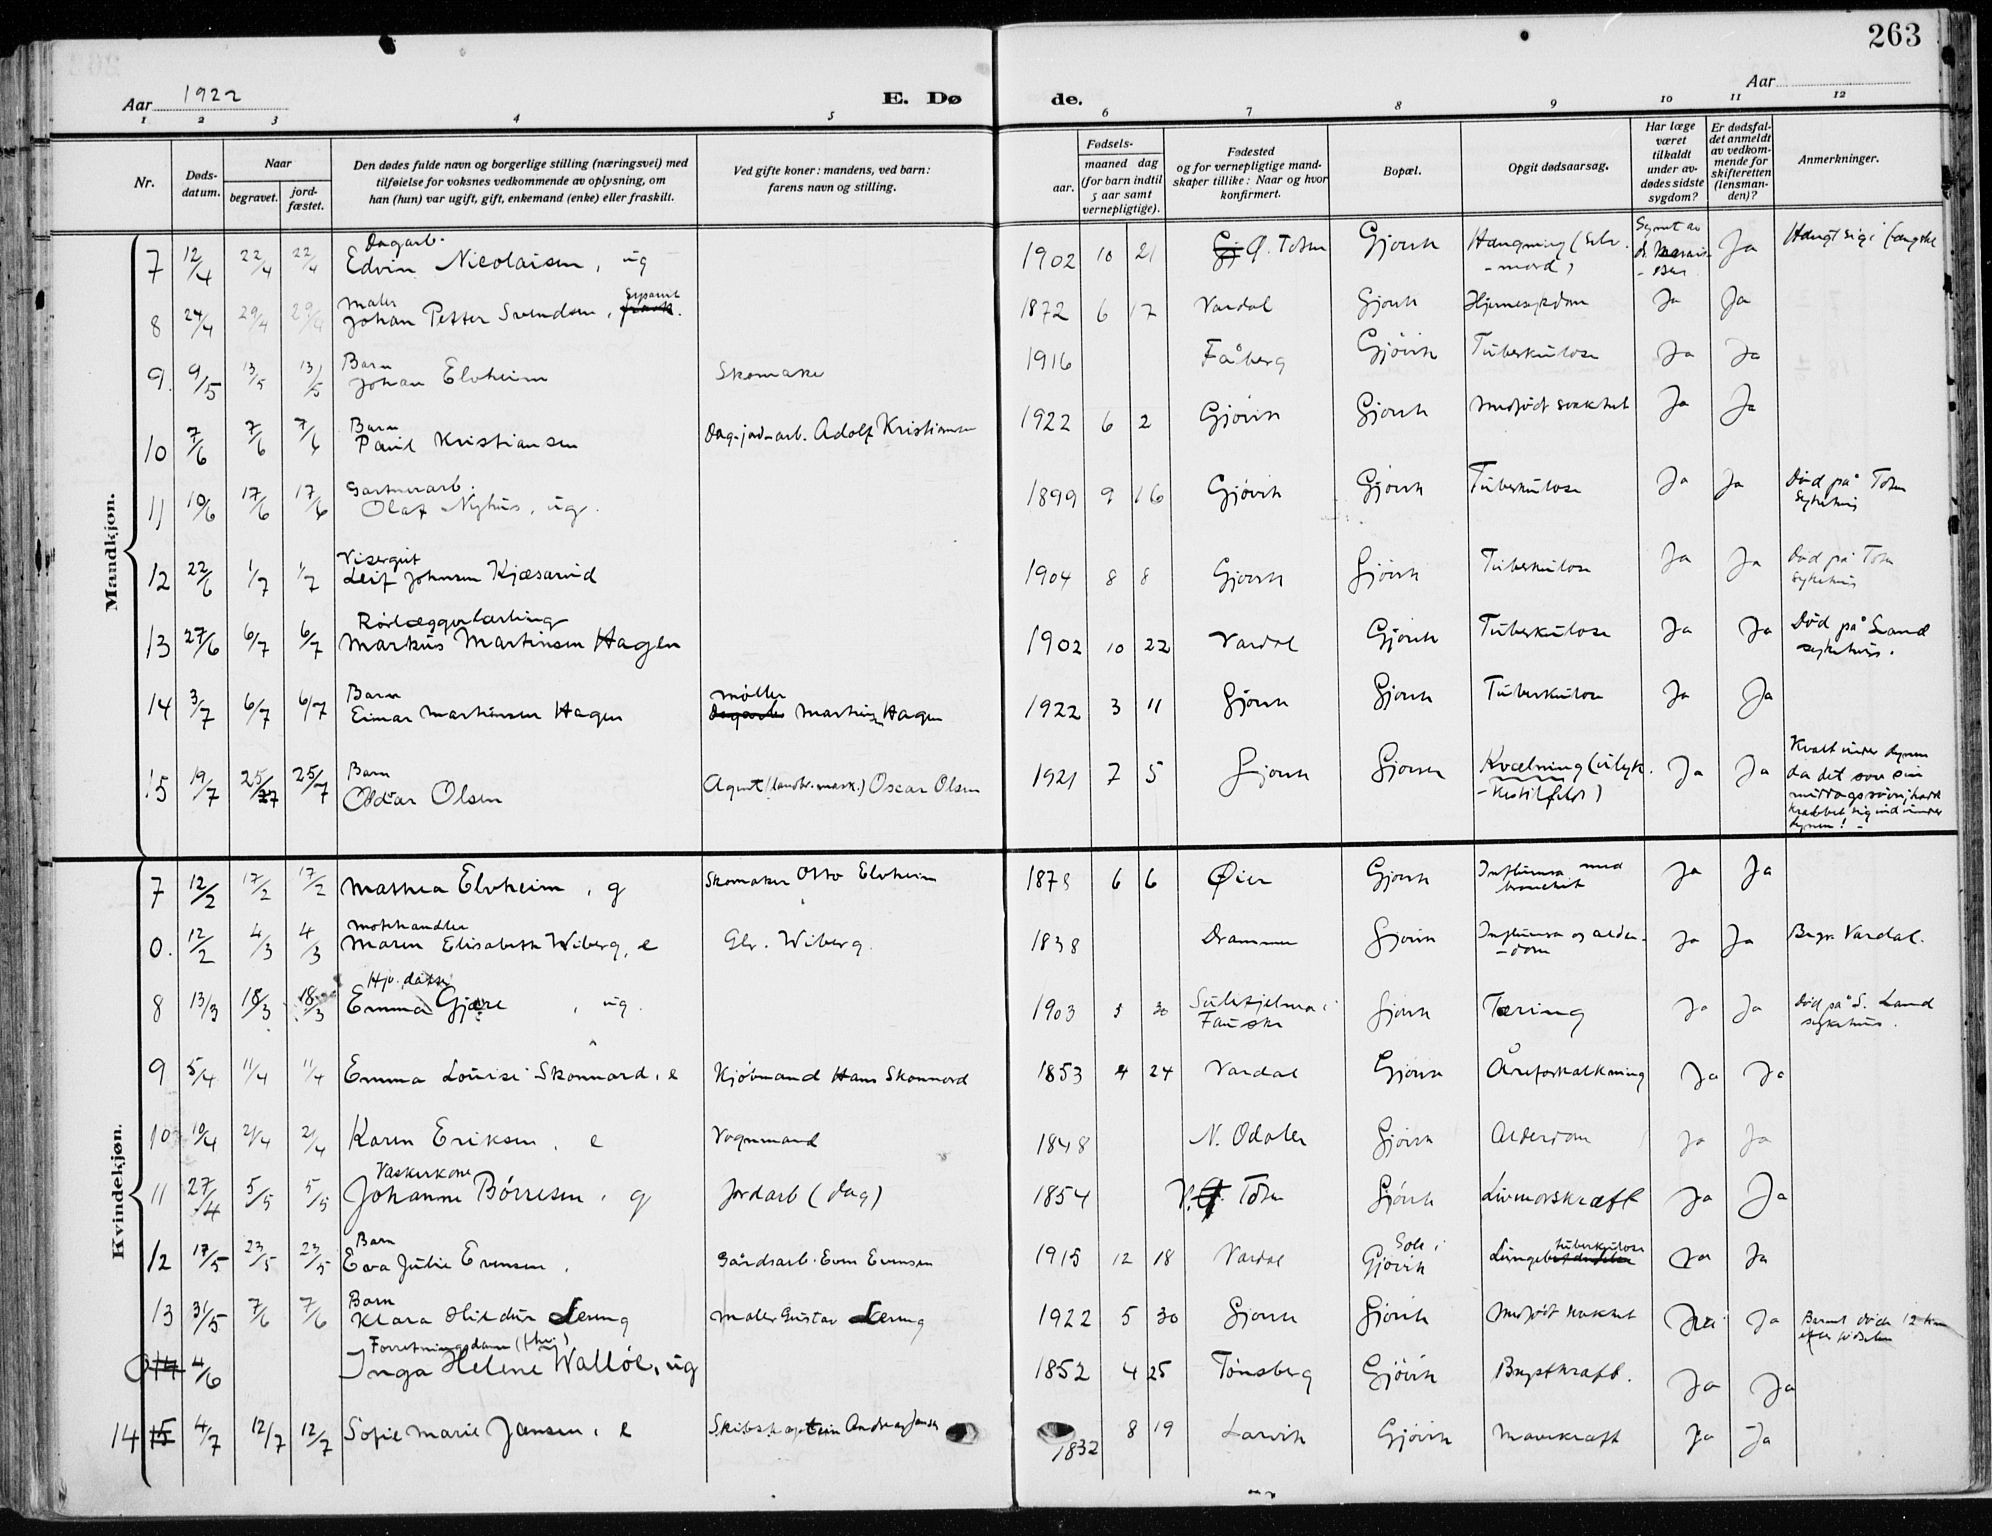 263
Aar 1922
E. Dø
de.
Aar
1 2 3 4 5 6 7 8 9 10 11 12
Nr.
Døds-
datum.
Naar
begravet.
jord-
fæstet.
Den dødes fulde navn og borgerlige stilling (næringsvei) med
tilføielse for voksnes vedkommende av oplysning, om
han (hun) var ugift, gift, enkemand (enke) eller fraskilt.
Ved gifte koner: mandens, ved barn:
farens navn og stilling.
Fødsels-
aar.
maaned dag
(for barn indtil
5 aar samt
vernepligtige).
Fødested
og for vernepligtige mand-
skaper tillike: Naar og hvor
konfirmert.
Bopæl.
Opgit dødsaarsag.
Har læge
været
tilkaldt
under av-
dødes sidste
sygdom?
Er dødsfal-
det anmeldt
av vedkom-
mende for
skifteretten
(lensman-
den)?
Anmerkninger.
Mandkjøn.
Dagarb.
7 12/4 22/4 22/4 Edvin Nicolaisen, ug 1902 10 21 Ø. Toten Gjøvik Hængning (selv-
mord) Synet av Ja
Maler Separert
8 24/4 29/4 29/4 Johan Petter Svendsen, 1872 6 17 Vardal Gjøvik Hjernesykdom Ja Ja
Barn
9. 9/5 13/5 13/5 Johan Elvheim Skomaker 1916 Fåberg Gjøvik Tuberkulose Ja Ja
Barn
10 7/6 7/6 7/6 Paul Kristiansen Dag-jordarb. Adolf Kristiansen 1922 6 2 Gjøvik Gjøvik Medfødt svakhet Ja Ja
Gartnerarb.
11 10/6 17/6 17/6 Olaf Nyhus, ug. 1899 9 16 Gjøvik Gjøvik Tuberkulose Ja Ja Død på Toten
Sykehus
Visergut
12 22/6 1/7 1/7 Leif Johnsen Kjæsarud 1904 8 8 Gjøvik Gjøvik Tuberkulose Ja Ja Død på Toten
Sykehus
Rørlæggerlærling
13 27/6 6/7 6/7 Markus Martinsen Hagen 1902 10 22 Vardal Gjøvik Tuberkulose Ja Ja Død på Land
sykehus.
Barn Møller
14 3/7 6/7 6/7 Einar Martinsen Hagen Dagarb. Martin Hagen 1922 3 11 Gjøvik Gjøvik Tuberkulose Ja Ja
Barn
15 19/7 25/7 25/7 Oddvar Olsen Agent (landbr. mask.) Oscar Olsen 1921 7 5 Gjøvik Gjøvik Kvælning (ulyk-
kestilfelde) Ja Ja Kvalt under dynen
da det sov sin
middagssøvn, hadde
krabbet sig ind under
dynen! -
Kvindekjøn.
7 12/2 17/2 17/2 Mathea Elvheim, g Skomaker Otto Elvheim 6 6 Øier Gjøvik Influensa med
bronchit Ja Ja
Motehandler
0. 12/2 4/3 4/3 Maren Elisabeth Wiberg, e Wiberg. 1838 Drammen Gjøvik Influensa og alder-
dom Ja Ja Begr. Vardal.
8 13/3 18/3 18/3 Emma Gjære, ug. 1903 5 30 Sulitjelma i
Fauske Gjøvik Tæring Ja Ja Død på S. Land
sykehus.
9 5/4 11/4 11/4 Emma Louise Skonnord, e Kjøbmand Hans Skonnord 1853 4 24 Vardal Gjøvik Åreforkalkning Ja Ja
10 19/4 21/4 21/4 Karen Eriksen, e Vognmand 1848 N. Odalen Gjøvik Alderdom Ja Ja
Vaskerkone
11 27/4 5/5 5/5 Johanne Børresen, g Jordarb (dag) 1854 V. Toten Gjøvik Livmorskræft Ja Ja
Barn
12 17/5 23/5 23/5 Eva Julie Evensen. Gårdsarb. Even Evensen 1915 12 18 Vardal Gjøvik Lungetuberkulose Ja Ja
Barn
13 31/5 7/6 7/6 Klara Hildur Maler Gustav 1922 5 30 Gjøvik Gjøvik Medfødt svakhet Ja Ja Barnet døde 12 tim
efter fødselen
Forretningsdame
14 4/6 Inga Helene Walløe, ug 1852 4 25 Tønsberg Gjøvik Brystkræft. Ja Ja
14 15 4/7 12/7 12/7 Sofie Marie Jansen, e Skibskaptein Andreas Jansen 1832 8 19 Larvik Gjøvik Mavekræft Ja Ja